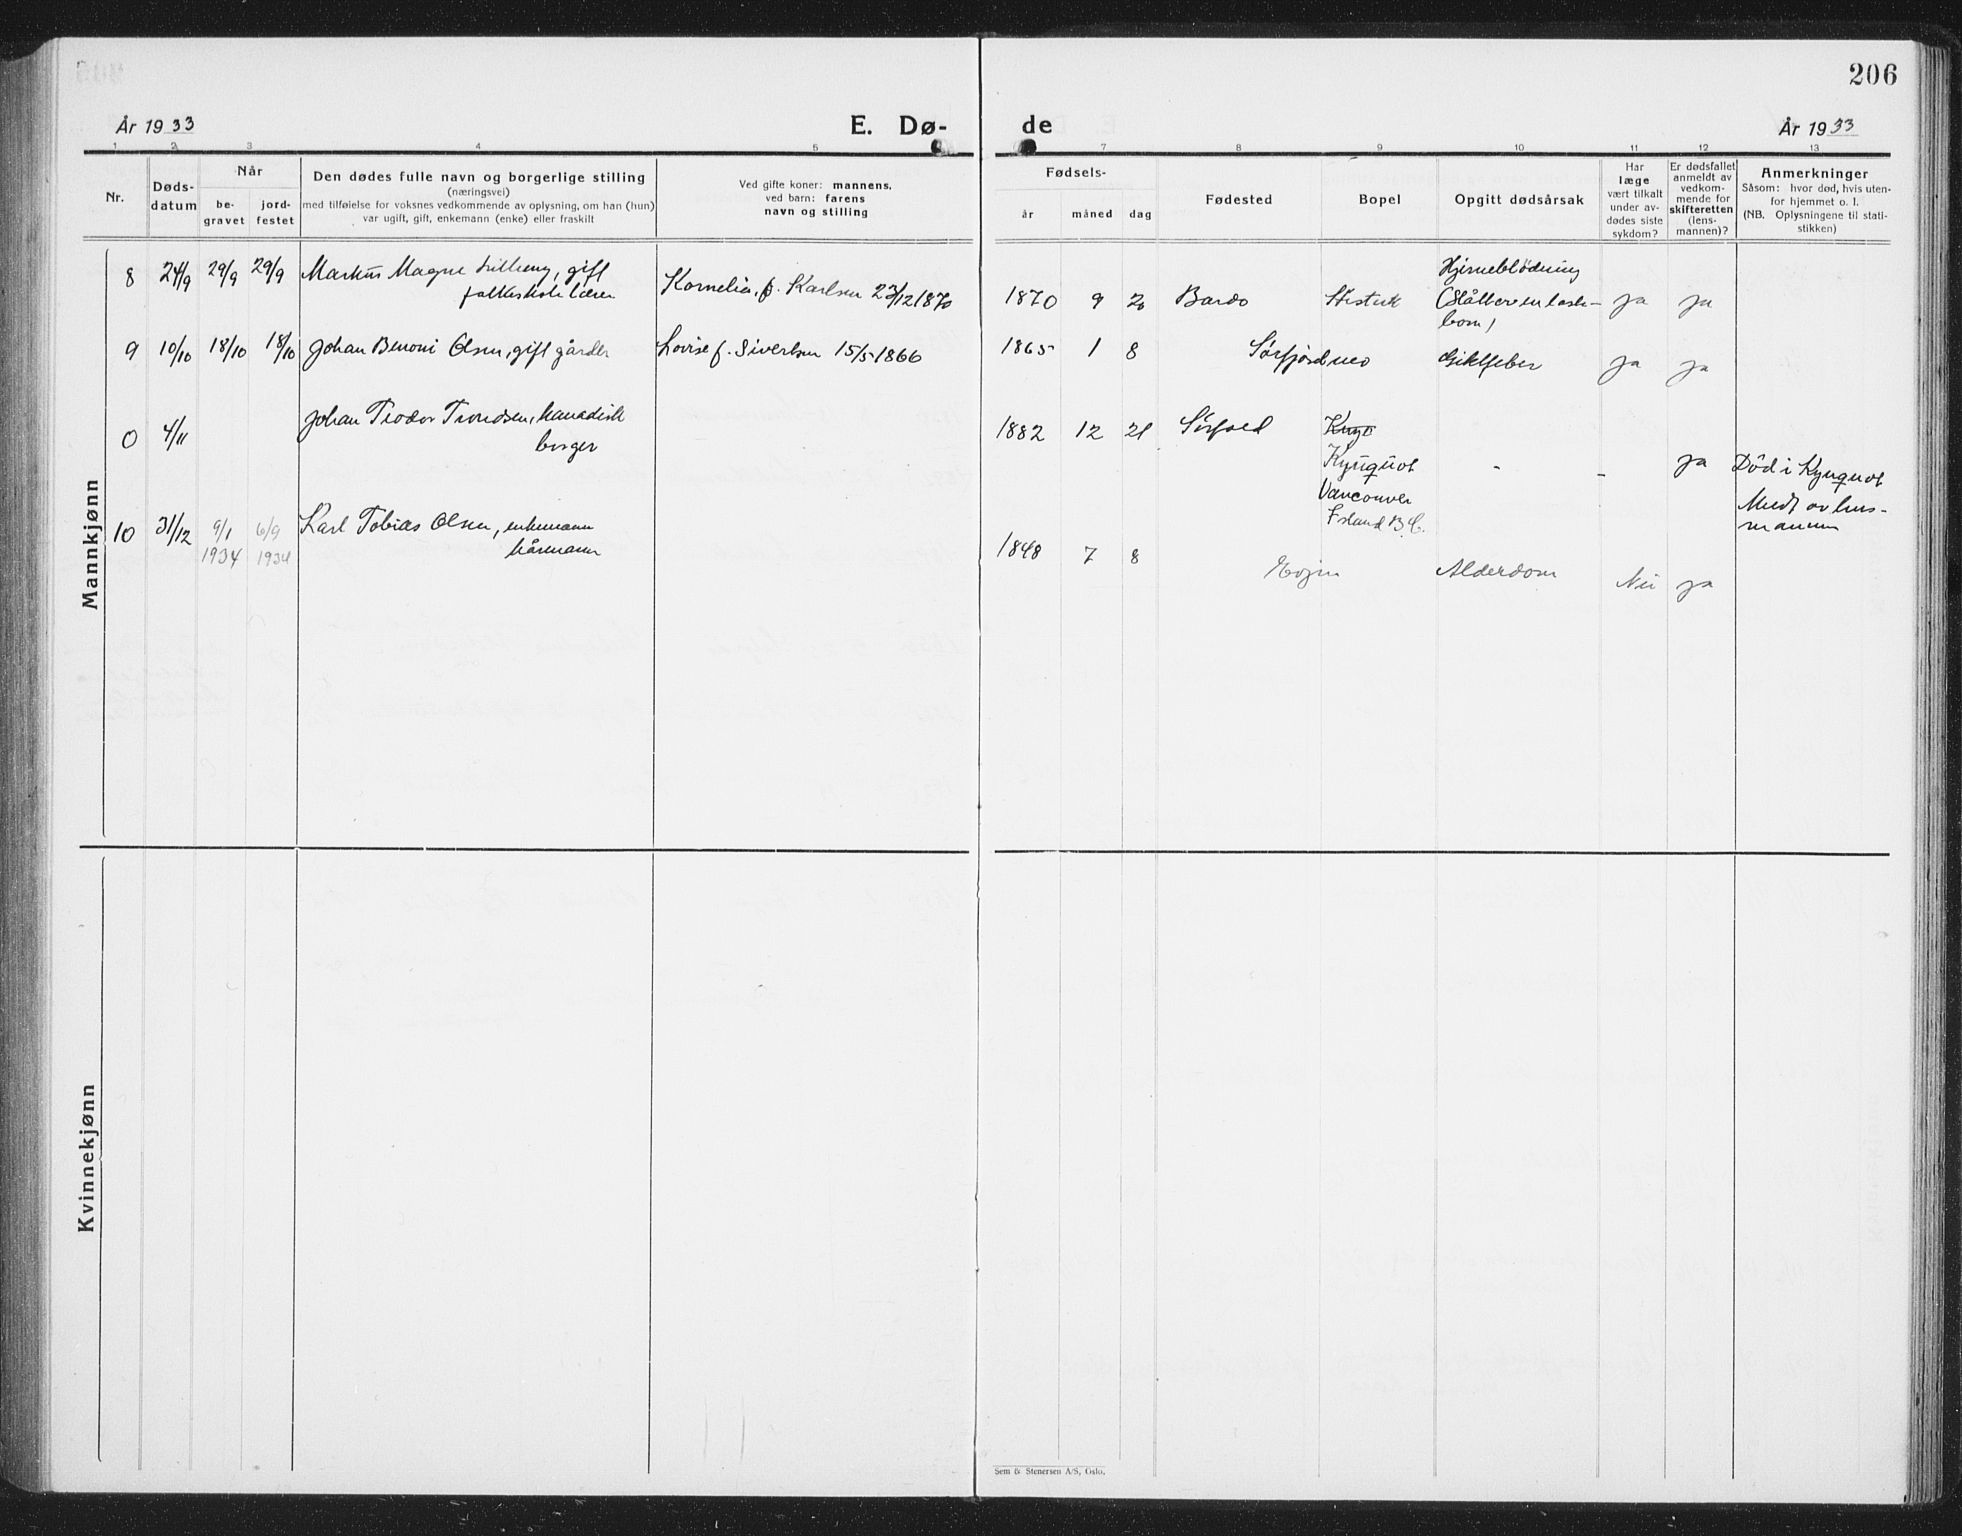 206
År 1933
E. Dø-
de
År 1933
1 2 3 4 5
7 8 9 10 11 12 13
Nr.
Døds-
datum
Når
be-
gravet
jord-
festet
Den dødes fulle navn og borgerlige stilling
(næringsvei)
med tilføielse for voksnes vedkommende av oplysning, om han (hun)
var ugift, gift, enkemann (enke) eller fraskilt
Ved gifte koner: mannens,
ved barn: farens
navn og stilling
Fødsels-
år måned dag
Fødested
Bopel
Opgitt dødsårsak
Har
læge
vært tilkalt
under av-
dødes siste
sykdom?
Er dødsfallet
anmeldt av
vedkom-
mende for
skifteretten
(lens-
mannen)?
Anmerkninger
Såsom: hvor død, hvis uten-
for hjemmet o. l.
(NB. Oplysningene til stati-
stikken)
Mannkjønn
8 24/9 29/9 29/9 Markus Magne, gift
folkeskolelærer
Kornelia, f. Karlsen 23/12 1870
1870 9 20 Bardo
Hjerneblödning
ja ja
9 10/10 18/10 18/10 Johan Benoni Olsen, gift gårdbr
Lovise f. Sivertsen 15/5 1866
1865 1 8 Sørfjordmo Giktfeber ja ja
0 4/11 Johan Teodor Trondsen, kanadisk
borger
1882 12 21 Sørfold
Kyuquot
Vancouver
Island B.C.
- - ja Död i Kyuquot
Medt av lens-
mannen
10 31/12 9/1
1934
6/9
1934
Karl Tobias Olsen, enkemann
kårmann
1848 7 8 Evjen Alderdom Nei ja
Kvinnekjønn
Sem & Stenersen A/S, Oslo.